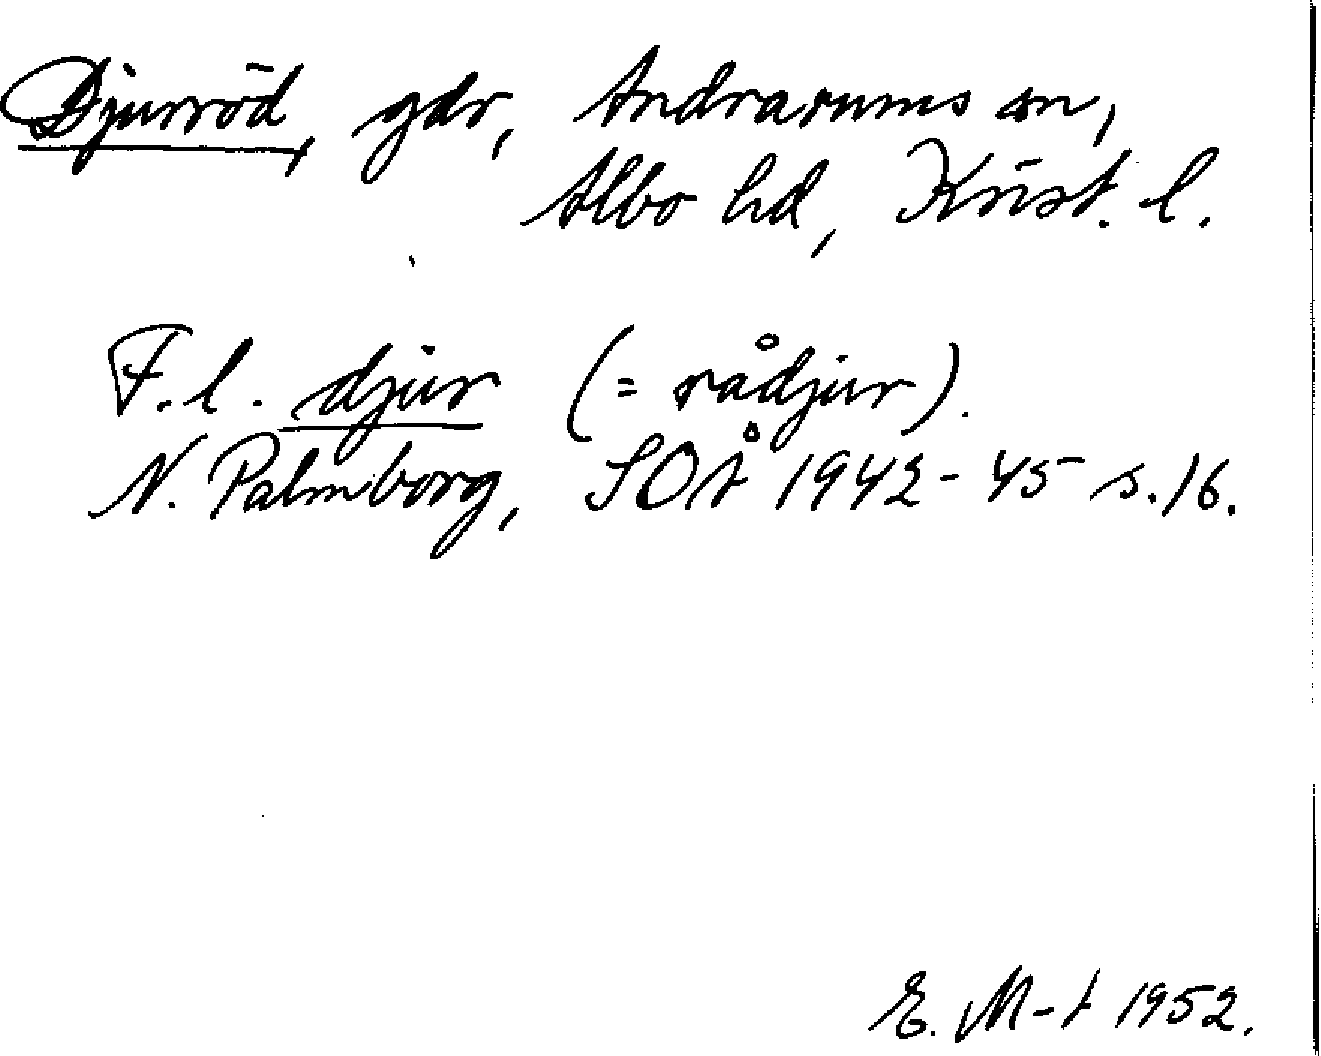 Djurröd, gdr, Andrarums sn,
Albo hd, Krist. l.
F. l. djur (= rådjur).
N. Palmborg, SOÅ 1942-45 s. 16.
E. M-t 1952.